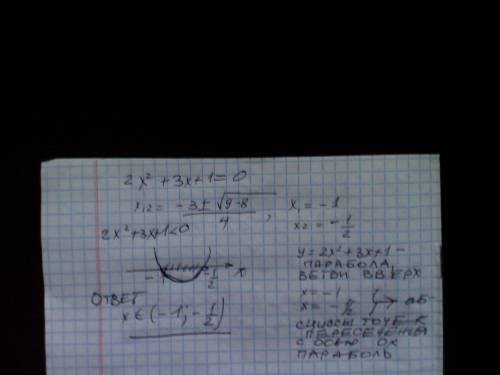 2x² + 3x + 1 = 0
x₁,₂ = (-3 ± √(9-8)) / 4 ; x₁ = -1
x₂ = -1/2
2x² + 3x + 1 < 0
y = 2x² + 3x + 1 -
ПАРАБОЛА,
ВЕТВИ ВВЕРХ
-1 -1/2 x
x = -1
x = -1/2 } → АБ-
СЦИССЫ ТОЧЕК
ПЕРЕСЕЧЕНИЯ
С ОСЬЮ OX
ПАРАБОЛЫ
ОТВЕТ
x ∈ (-1; -1/2)